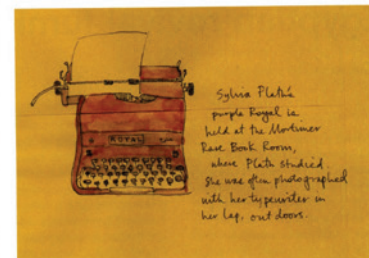 ROYAL
Sylvia Plath's
purple Royal is
held at the Mortimer
Rare Book Room,
where Plath studied.
She was often photographed
with her typewriter in
her lap, outdoors.